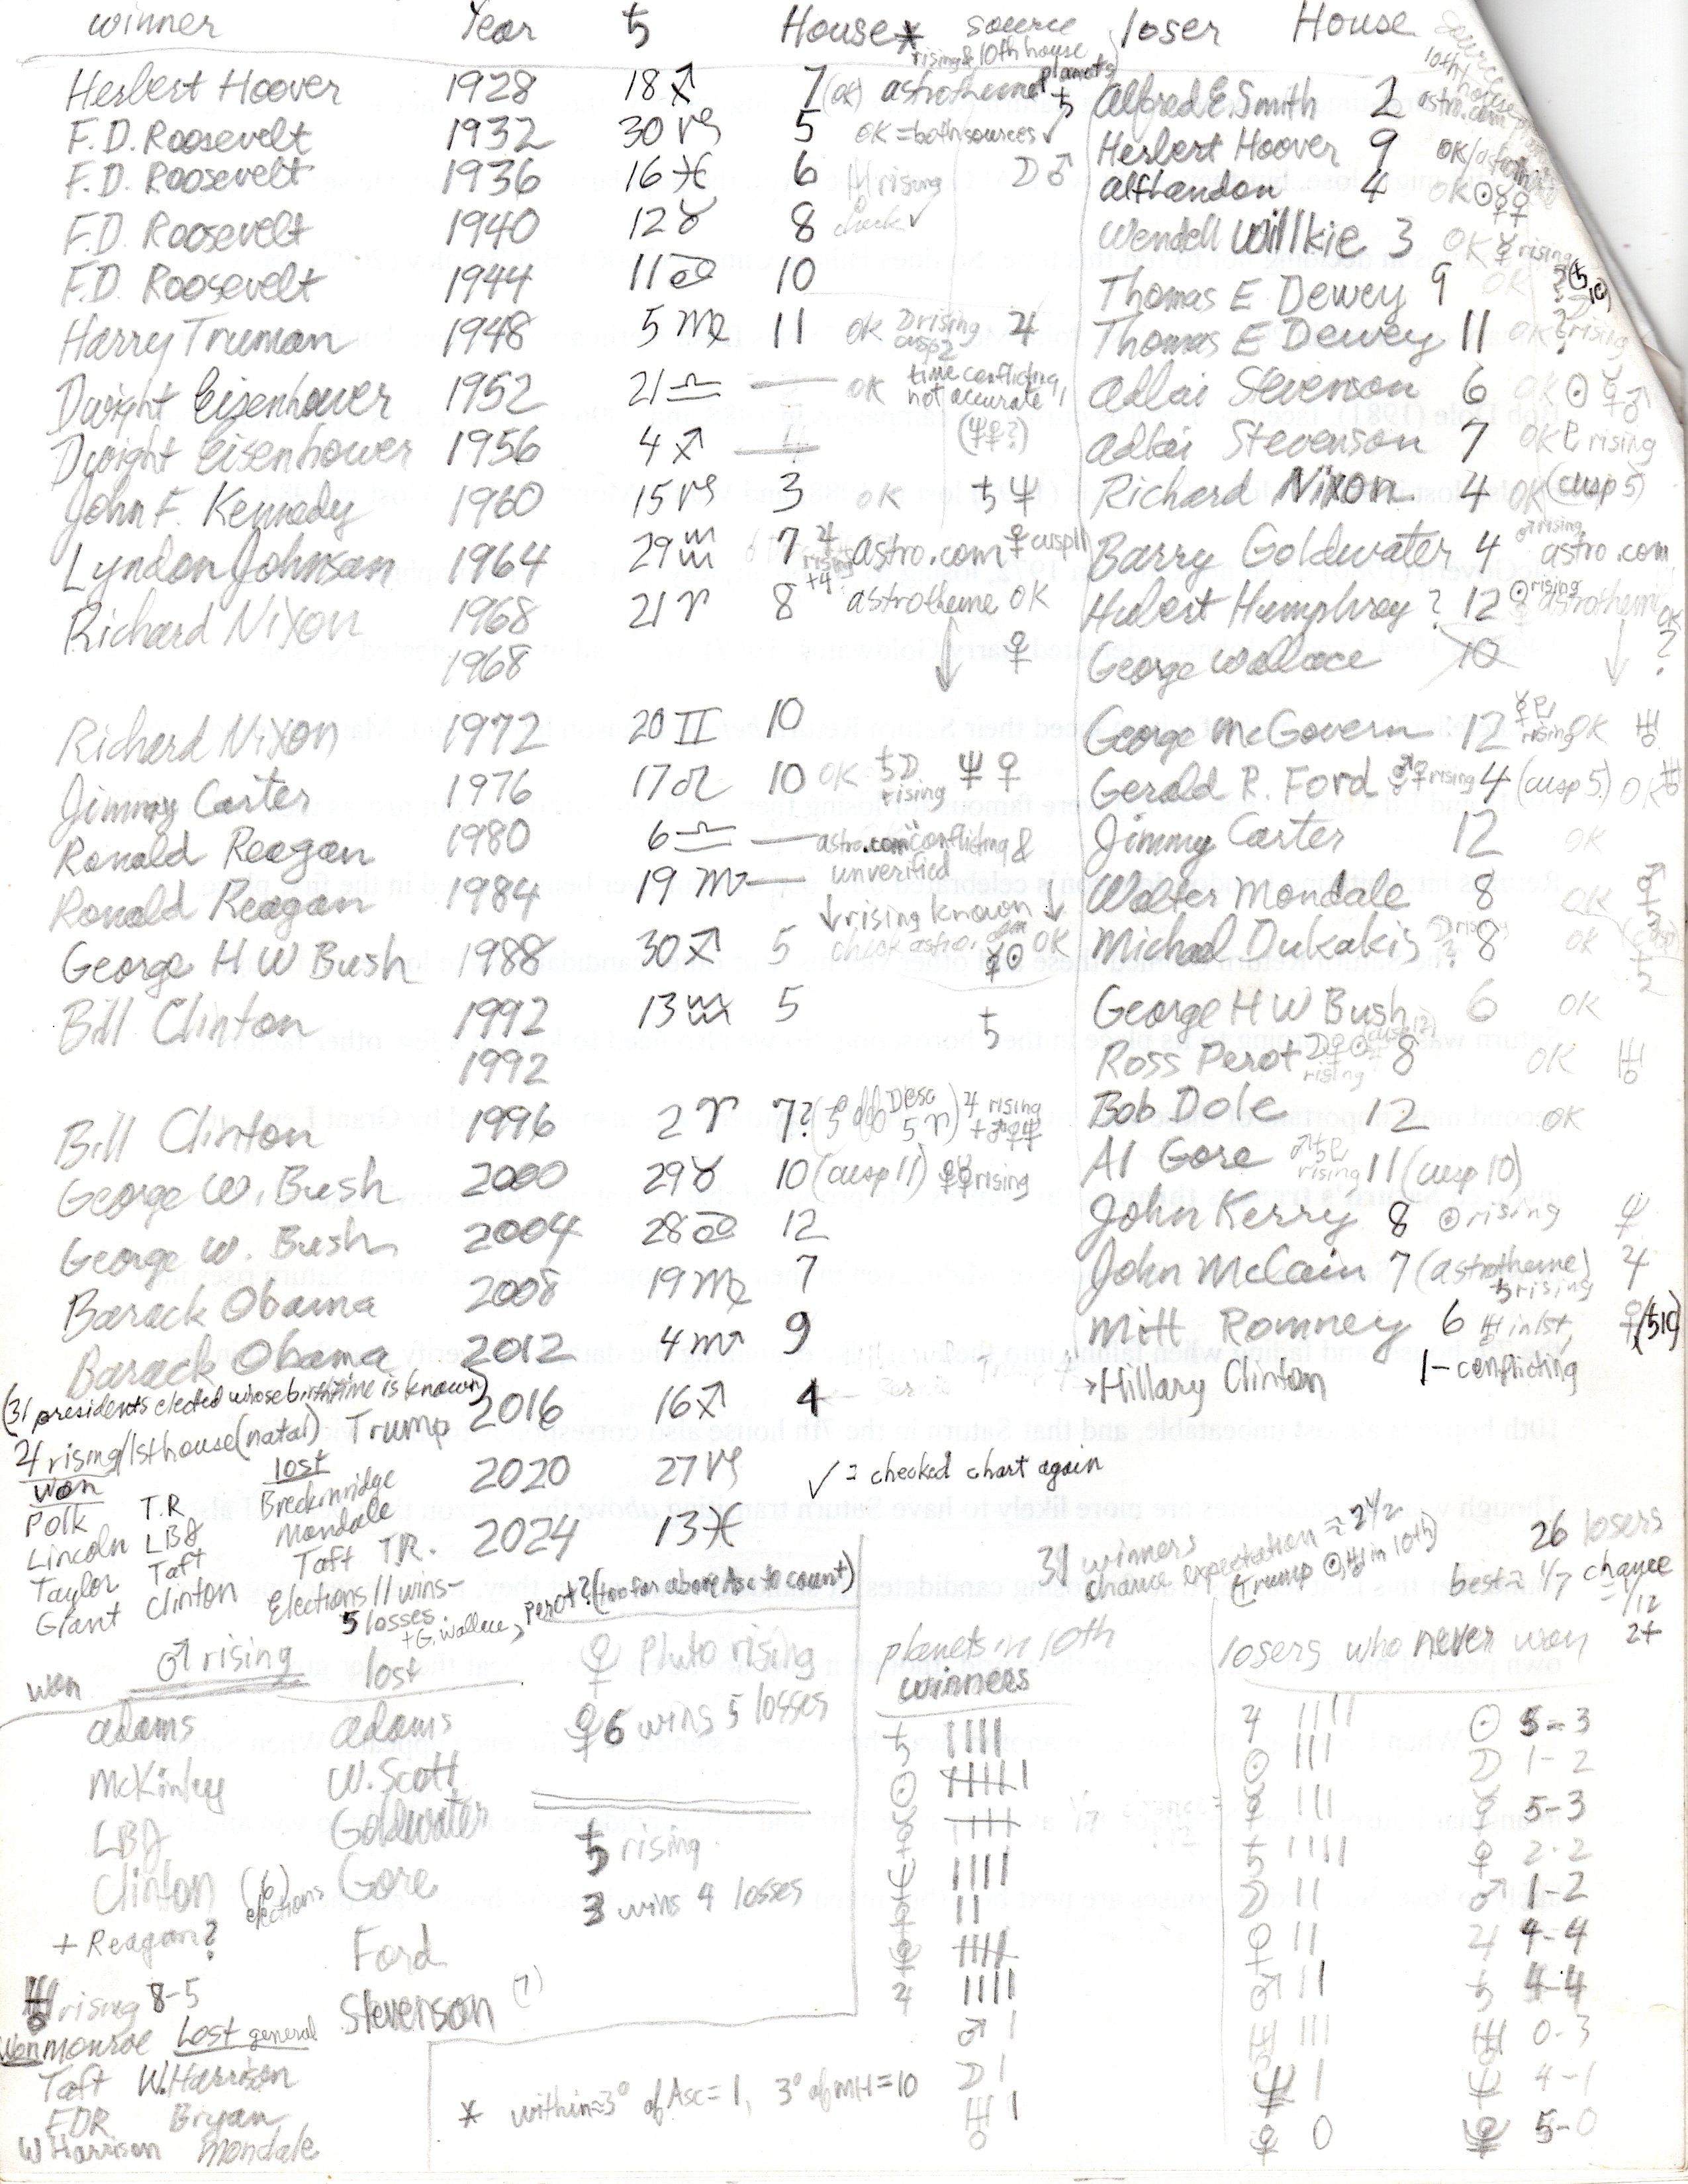 winner Year ♄ House* source loser House source
rising & 10th house planets 10th house
Herbert Hoover 1928 18♐ 7 (ok) astrotheme ♄ Alfred E. Smith 2 astro.com
F.D. Roosevelt 1932 30♑ 5 OK = both sources ✓ Herbert Hoover 9 OK
F.D. Roosevelt 1936 16♓ 6 ♅ rising ☽♂ Alf Landon 4 OK ☉☿♀
F.D. Roosevelt 1940 12♉ 8 check ✓ Wendell Willkie 3 OK ☿ rising
F.D. Roosevelt 1944 11♋ 10 Thomas E Dewey 9 OK
Harry Truman 1948 5♍ 11 OK ☽ rising cusp 2 ♃ Thomas E Dewey 11 OK ? rising
Dwight Eisenhower 1952 21♎ — OK time conflicting, not accurate Adlai Stevenson 6 OK ☉☿♂
Dwight Eisenhower 1956 4♐ — (♆♀?) Adlai Stevenson 7 OK ♇ rising
John F. Kennedy 1960 15♑ 3 OK ♄♆ Richard Nixon 4 OK (cusp 5)
Lyndon Johnson 1964 29♒ 7 ♃ rising astro.com ♀ cusp 11 Barry Goldwater 4 ♂ rising astro.com
Richard Nixon 1968 21♈ 8 astrotheme OK Hubert Humphrey ? 12 ☉ rising astrotheme
1968 ♀ George Wallace 10 ?
Richard Nixon 1972 20♊ 10 George McGovern 12 ☿♇ rising OK ♅
Jimmy Carter 1976 17♌ 10 OK ♄☽ rising ♆♀ Gerald R. Ford rising 4 (cusp 5) OK
Ronald Reagan 1980 6♎ — astro.com "conflicting & unverified Jimmy Carter 12 OK
Ronald Reagan 1984 19♏ — ↓ rising known ↓ Walter Mondale 8 OK
George H W Bush 1988 30♐ 5 check astro.com OK ☿☉ Michael Dukakis ? 8 OK (cusp) ♄
Bill Clinton 1992 13♒ 5 ♄ George H W Bush 6 OK
1992 Ross Perot rising 8 OK ♅
Bill Clinton 1996 2♈ 7? (3° off Desc 5♈) ♃ rising Bob Dole 12 OK
George W. Bush 2000 29♉ 10 (cusp 11) rising Al Gore ♂♄♇ rising 11 (cusp 10)
George W. Bush 2004 28♋ 12 John Kerry 8 ☉ rising ♆
Barack Obama 2008 19♍ 7 John McCain 7 (astrotheme) ♄ rising ♃
Barack Obama 2012 4♏ 9 Mitt Romney 6 ♅ in 1st, ♀ (♄10)
(31 presidents elected whose birthtime is known)
Trump 2016 16♐ 4 Hillary Clinton 1 - conflicting
♃ rising/1st house (natal)
2020 27♑ ✓ = checked chart again
2024 13♓
won lost
Polk T.R. Breckinridge
Lincoln LBJ Mondale
Taylor Taft Taft T.R.
Grant Clinton Elections 11 wins-
5 losses
+G. Wallace, Perot? (too far above Asc to count)
31 winners
chance expectation ≈ 2 1/2
(Trump ☉♅ in 10th)
26 losers
best = 1/7 chance
= 1/12
2+
won ♂ rising lost
Adams Adams
McKinley W. Scott
LBJ Goldwater
Clinton (6) elections Gore
+ Reagan? Ford
Stevenson (7)
Pluto rising
6 wins 5 losses
♄ rising
3 wins 4 losses
♅ rising 8-5
won Monroe Lost general
Taft W. Harrison
FDR Bryan
W Harrison Mondale
planets in 10th
winners
♄ IIII
☉ IIIII I
☿ IIIII
♆ IIII
♀ II
IIIII
♃ IIII
♂ I
☽ I
♅ I
losers who never won
♃ IIII ☉ 5-3
☉ III ☽ 1-2
☿ III ☿ 5-3
♄ IIII ♀ 2-2
☽ II ♂ 1-2
♀ II ♃ 4-4
♂ II ♄ 4-4
♅ III ♅ 0-3
♆ I ♆ 4-1
0 5-0
* within ≈3° of Asc = 1, 3° of MH = 10